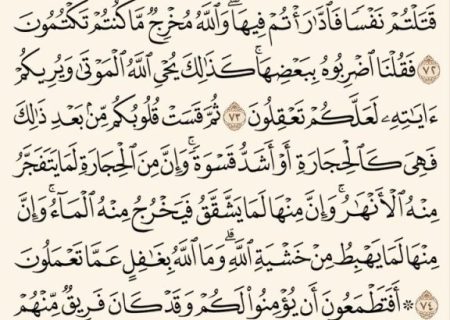 قَتَلْتُمْ نَفْسًا فَٱدَّٰرَْٰٔتُمْ فِيهَا ۖ وَٱللَّهُ مُخْرِجٌ مَّا كُنتُمْ تَكْتُمُونَ
٧٢ فَقُلْنَا ٱضْرِبُوهُ بِبَعْضِهَا ۚ كَذَٰلِكَ يُحْىِ ٱللَّهُ ٱلْمَوْتَىٰ وَيُرِيكُمْ
ءَايَٰتِهِۦ لَعَلَّكُمْ تَعْقِلُونَ ٧٣ ثُمَّ قَسَتْ قُلُوبُكُم مِّنۢ بَعْدِ ذَٰلِكَ
فَهِىَ كَٱلْحِجَارَةِ أَوْ أَشَدُّ قَسْوَةً ۚ وَإِنَّ مِنَ ٱلْحِجَارَةِ لَمَا يَتَفَجَّرُ
مِنْهُ ٱلْأَنْهَٰرُ ۚ وَإِنَّ مِنْهَا لَمَا يَشَّقَّقُ فَيَخْرُجُ مِنْهُ ٱلْمَآءُ ۚ وَإِنَّ
مِنْهَا لَمَا يَهْبِطُ مِنْ خَشْيَةِ ٱللَّهِ ۗ وَمَا ٱللَّهُ بِغَٰفِلٍ عَمَّا تَعْمَلُونَ
٧٤ ۞ أَفَتَطْمَعُونَ أَن يُؤْمِنُوا۟ لَكُمْ وَقَدْ كَانَ فَرِيقٌ مِّنْهُمْ